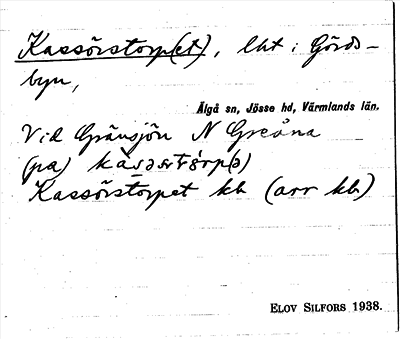 Kassörstorp(et), lht i Görds-
byn,
Älgå sn, Jösse hd, Värmlands län.
Vid Gränsjön N Greåna
(pa)
Kassörstorpet kb (arr kb)
ELOV SILFORS 1938.